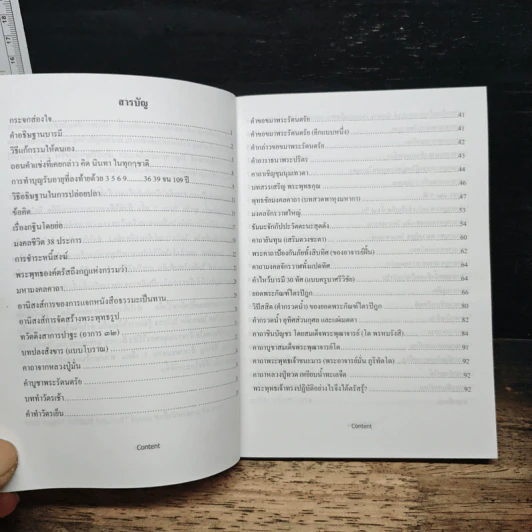 สารบัญ
กระจกส่องใจ
คำอธิษฐานบารมี 1
วิธีแก้กรรมให้ตนเอง 2
ถอนคำแช่งที่เคยกล่าว คิด นินทา ในทุกๆชาติ
การทำบุญรับอายุที่ลงท้ายด้วย 3 5 6 9.......36 39 จน 109 ปี
วิธีอธิษฐานในการปล่อยปลา
ข้อคิด
เรื่องกฐินโดยย่อ
มงคลชีวิต 38 ประการ
การชำระหนี้สงฆ์
พระพุทธองค์ตรัสถึงกฎแห่งกรรมว่า
มหามงคลคาถา
อานิสงส์การของการแจกหนังสือธรรมะเป็นทาน
อานิสงส์การจัดสร้างพระพุทธรูป
ทวัตติงสาการปาฐะ (อาการ ๓๒)
บทปลงสังขาร (แบบโบราณ)
คาถาจากหลวงปู่มั่น
คำบูชาพระรัตนตรัย
บททำวัตรเช้า
คำทำวัตรเย็น
Content
คำขอขมาพระรัตนตรัย 41
คำขอขมาพระรัตนตรัย (อีกแบบหนึ่ง) 41
คำกล่าวขอขมาพระรัตนตรัย 42
คำอาราธนาพระปริตร 44
คาถาเชิญชุมนุมเทวดา 44
บทสรรเสริญ พระพุทธคุณ 46
พุทธชัยมงคลคาถา (บทสวดพาหุงมหากา) 47
มงคลจักรวาฬใหญ่ 53
ธัมมะจักกัปปะวัตตะนะสุตตัง 54
คาถาขันทุน (เสริมดวงชะตา) 60
พระคาถาป้องกันภัยทั้งสิบทิศ (ของอาจารย์ฝั้น) 62
คาถามงคลจักรวาฬทั้งแปดทิศ 64
คำไหว้บารมี 30 ทัศ (แบบครูบาศรีวิชัย) 64
ยอดพระกัณฑ์ไตรปิฎก 66
วิธีสสิต (คำกรวดน้ำ) ของยอดพระกัณฑ์ไตรปิฎก 76
คำกรวดน้ำ อุทิศส่วนกุศล และแผ่เมตตา 82
คาถาชินบัญชร โดยสมเด็จพระพุฒาจารย์ (โต พรหมรังสี) 84
คาถาบูชาสมเด็จพระพุฒาจารย์โต 91
คาถาพระพุทธเจ้าชนะมาร (พระอาจารย์มั่น ภูริทัตโต) 92
คาถาหลวงปู่ทวด เหยียบน้ำทะเลจืด 92
พระพุทธเจ้าทรงปฏิบัติอย่างไรจึงได้ตรัสรู้? 92
Content